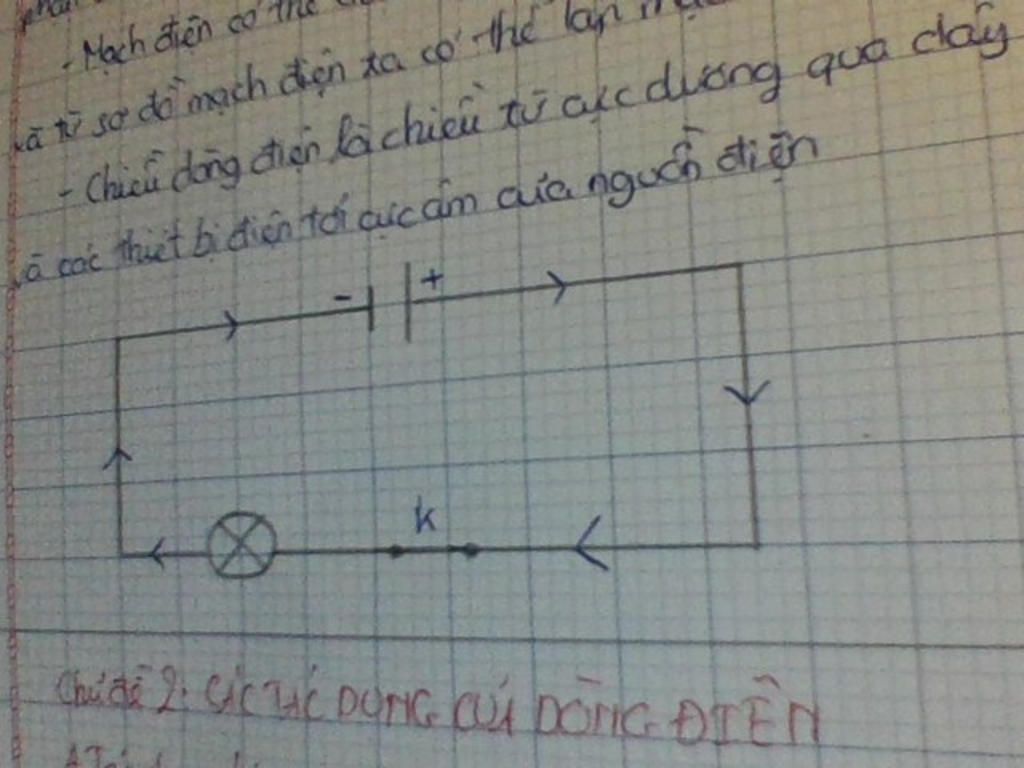 - Mạch điện có thể
và từ sơ đồ mạch điện ta có thể lắp
- Chiều dòng điện là chiều từ cực dương qua dây
và các thiết bị điện tới cực âm của nguồn điện
- +
K
Chủ đề 2: CÁC TÁC DỤNG CỦA DÒNG ĐIỆN